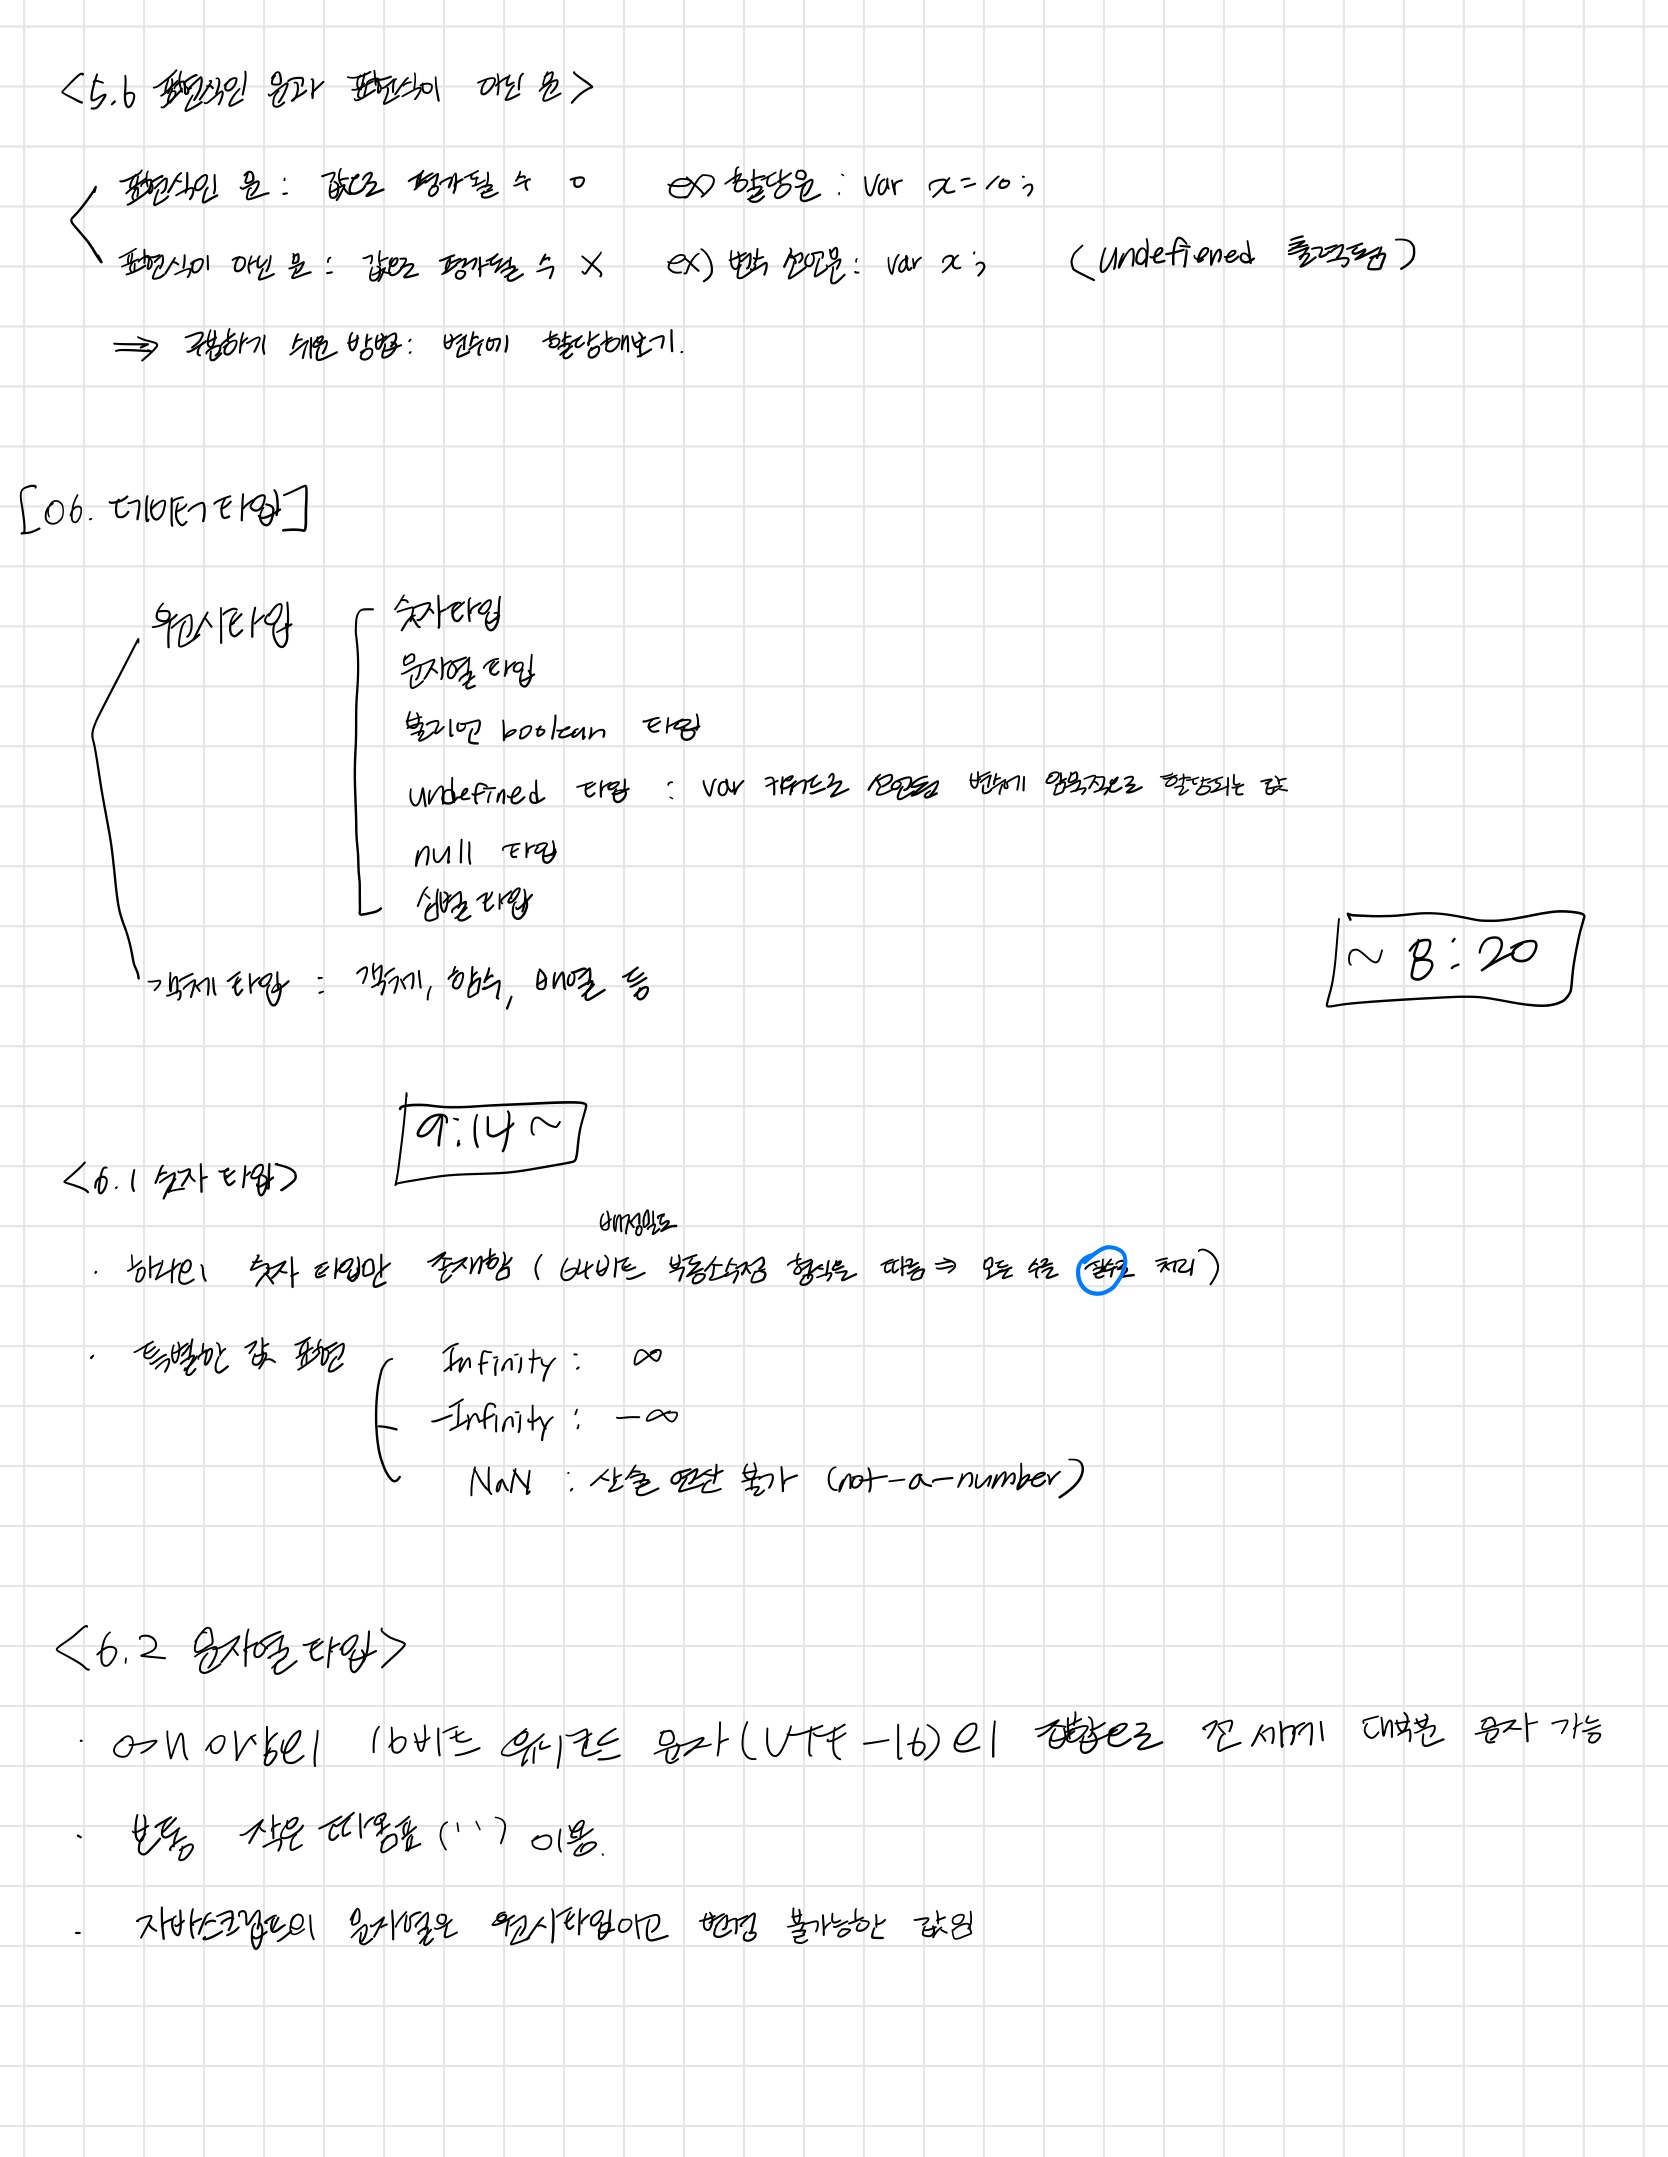 <5.6 표현식인 문과 표현식이 아닌 문>
표현식인 문 : 값으로 평가될 수 O ex) 할당문 : var x = 10;
표현식이 아닌 문 : 값으로 평가될 수 X ex) 변수 선언문 : var x; (undefiened 출력됨)
⇒ 구분하기 쉬운 방법 : 변수에 할당해보기.
[06. 데이터 타입]
원시타입
숫자타입
문자열 타입
불리언 boolean 타입
undefined 타입 : var 키워드로 선언된 변수에 암묵적으로 할당되는 값
null 타입
심벌 타입
~ 8:20
객체 타입 : 객체, 함수, 배열 등
9:14 ~
<6.1 숫자 타입>
배정밀도
· 하나의 숫자 타입만 존재함 (64비트 부동소수점 형식을 따름 ⇒ 모든 수를 실수로 처리)
· 특별한 값 표현
Infinity : ∞
-Infinity : -∞
NaN : 산술 연산 불가 (not-a-number)
<6.2 문자열 타입>
· 0개 이상의 16비트 유니코드 문자(UTF-16)의 집합으로 전 세계 대부분 문자 가능
· 보통 작은 따옴표 ('') 이용.
· 자바스크립트의 문자열은 원시타입이고 변경 불가능한 값임